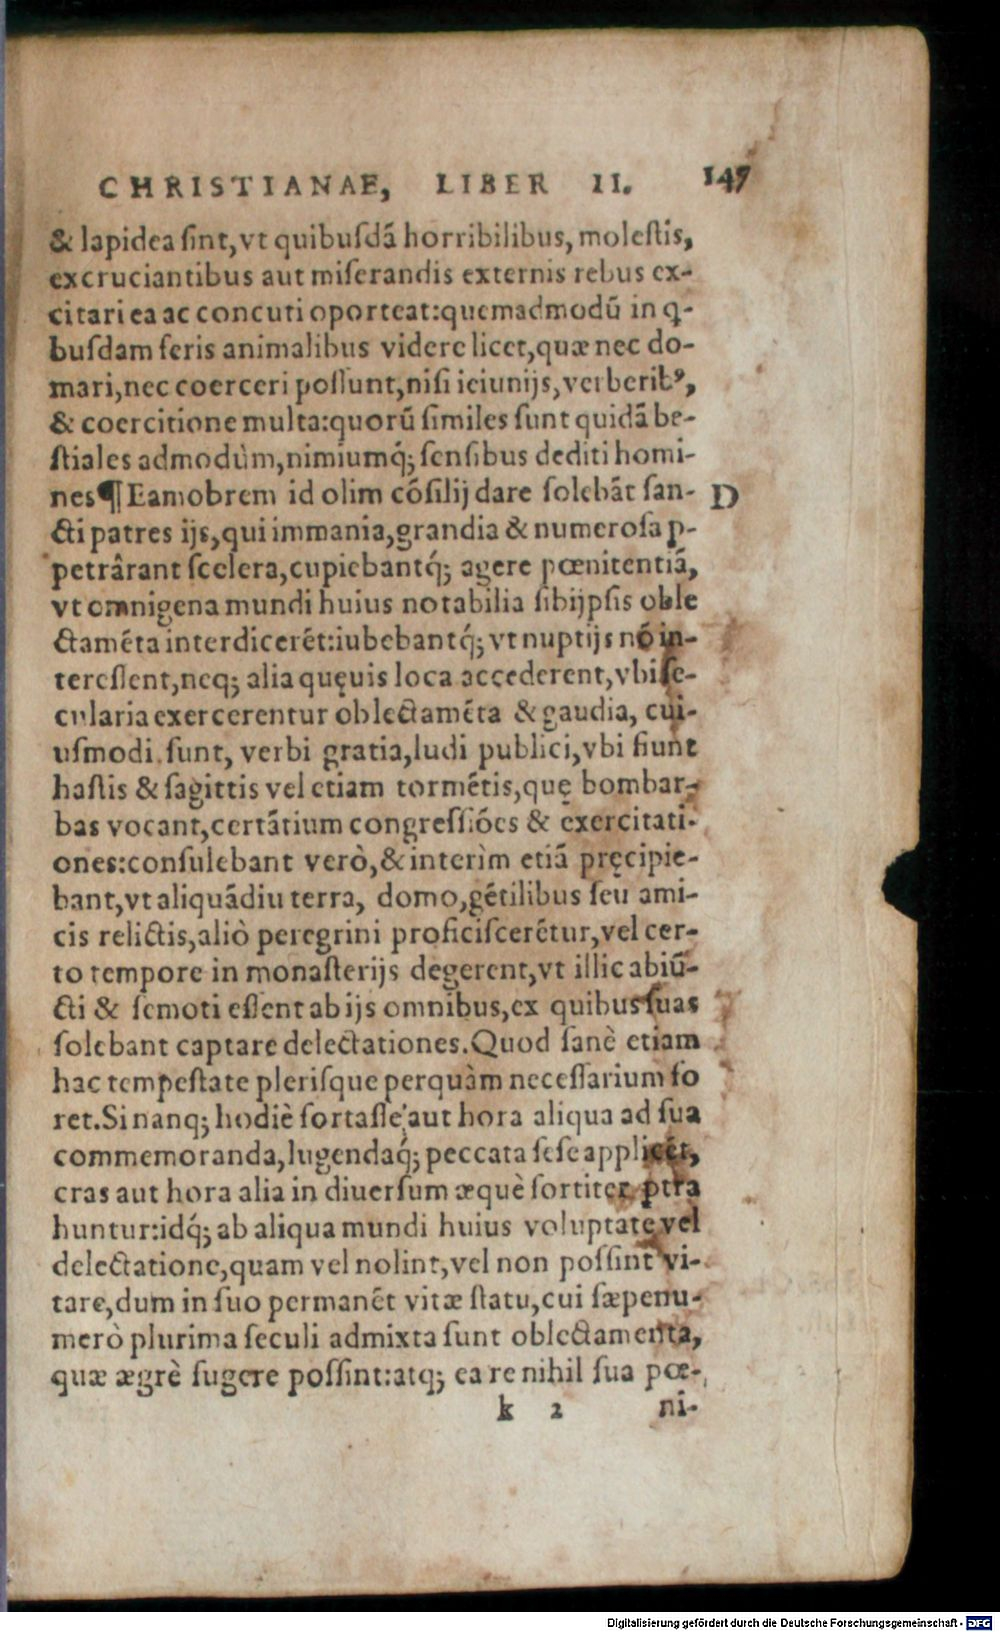 CHRISTIANAE, LIBER II. 147
& lapidea ſint, vt quibuſdā horribilibus, moleſtis,
excruciantibus aut miſerandis externis rebus ex-
citari ea ac concuti oporteat: quemadmodū in q-
buſdam feris animalibus videre licet, quæ nec do-
mari, nec coerceri poſſunt, niſi ieiunijs, verberibꝰ,
& coercitione multa: quorū ſimiles ſunt quidā be-
ſtiales admodùm, nimiumq́; ſenſibus dediti homi-
nes¶ Eamobrem id olim cōſilij dare ſolebāt ſan- D
cti patres ijs, qui immania, grandia & numeroſa p-
petrârant ſcelera, cupiebantq́; agere pœnitentiā,
vt omnigena mundi huius notabilia ſibijpſis oble
ctamēta interdicerēt: iubebantq́; vt nuptijs nō in-
tereſſent, neq; alia quęuis loca accederent, vbi ſe-
cularia exercerentur oblectamēta & gaudia, cui-
uſmodi ſunt, verbi gratia, ludi publici, vbi fiunt
haſtis & ſagittis vel etiam tormētis, quę bombar-
bas vocant, certātium congreſſiōes & exercitati-
ones: conſulebant verò, & interìm etiā pręcipie-
bant, vt aliquādiu terra, domo, gētilibus ſeu ami-
cis relictis, aliò peregrini proficiſcerētur, vel cer-
to tempore in monaſterijs degerent, vt illic abiū-
cti & ſemoti eſſent ab ijs omnibus, ex quibus ſuas
ſolebant captare delectationes. Quod ſanè etiam
hac tempeſtate pleriſque perquàm neceſſarium fo
ret. Si nanq; hodiè fortaſſe aut hora aliqua ad ſua
commemoranda, lugendaq́; peccata ſeſe applicēt,
cras aut hora alia in diuerſum æquè fortiter ptra
huntur: idq́; ab aliqua mundi huius voluptate vel
delectatione, quam vel nolint, vel non poſſint vi-
tare, dum in ſuo permanēt vitæ ſtatu, cui ſæpenu-
merò plurima ſeculi admixta ſunt oblectamenta,
quæ ægrè fugere poſſint: atq; ea re nihil ſua pœ-
k 2 ni-
Digitalisierung gefördert durch die Deutsche Forschungsgemeinschaft - DFG